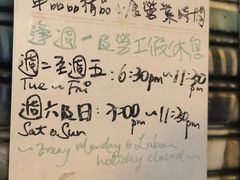 營業時間
逢週一及勞工假休息
週二至週五: 6:30pm~11:30pm
Tue ~ Fri
週六及日: 3:00pm~11:30pm
Sat & Sun
~ Every Monday & Labour
holiday closed ~